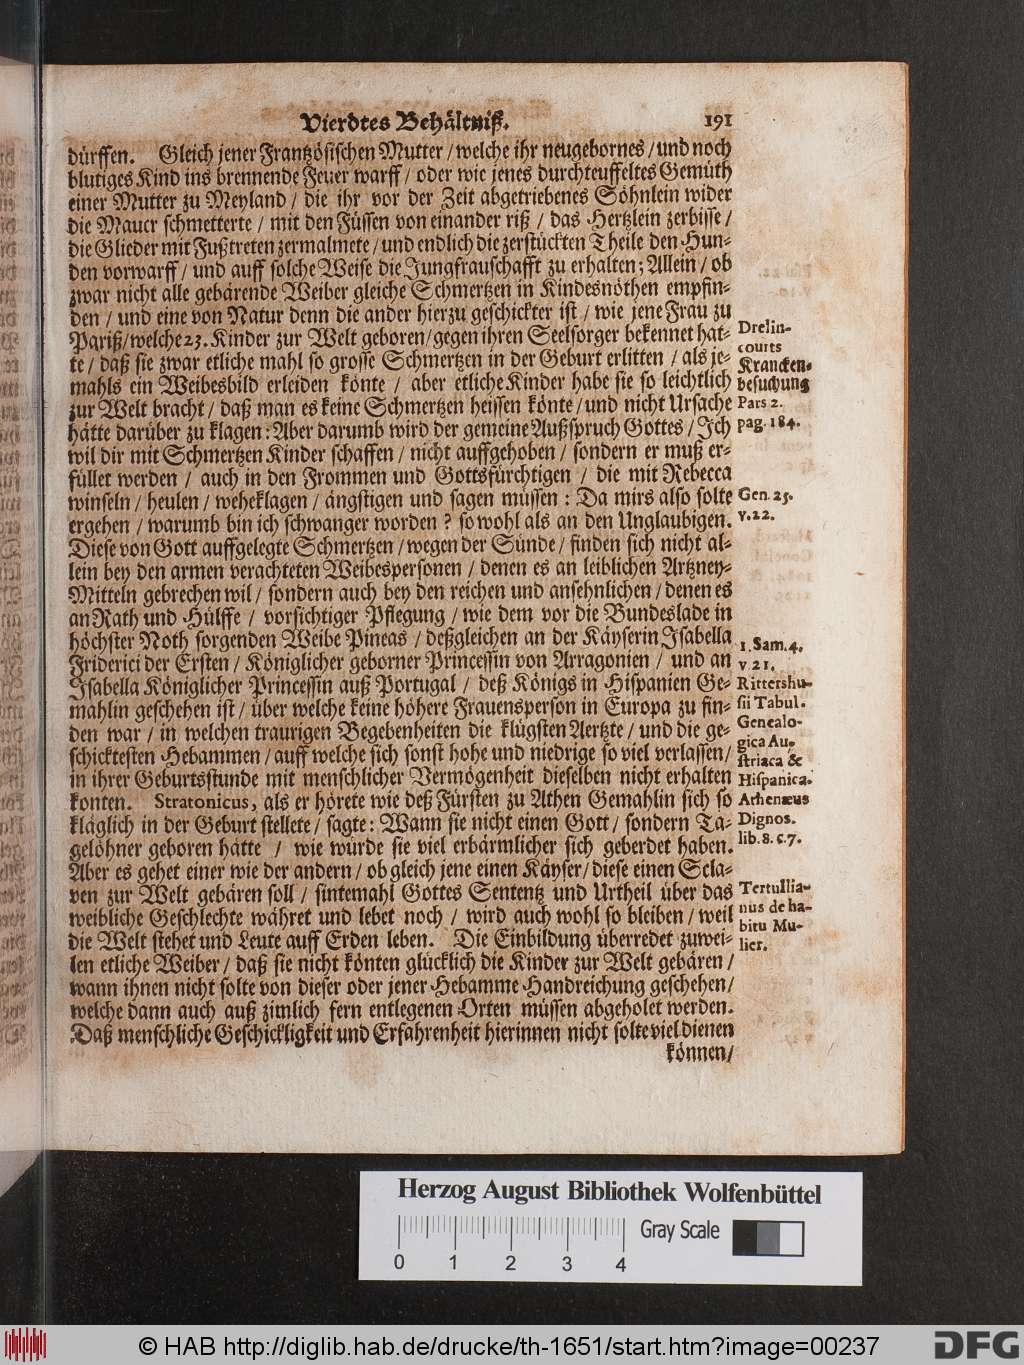 Vierdtes Behältniß. 191
dürffen. Gleich jener Frantzösischen Mutter / welche ihr neugebornes / und noch
blutiges Kind ins brennende Feuer warff / oder wie jenes durchteuffeltes Gemüth
einer Mutter zu Meyland / die ihr vor der Zeit abgetriebenes Söhnlein wider
die Maucr schmetterte / mit den Füssen von einander riß / das Hertzlein zerbisse /
die Glieder mit Fußtreten zermalmete / und endlich die zerstückten Theile den Hun-
den vorwarff / und auff solche Weise die Jungfrauschafft zu erhalten; Allein / ob
zwar nicht alle gebärende Weiber gleiche Schmertzen in Kindesnöthen empfin-
den / und eine von Natur denn die ander hierzu geschickter ist / wie jene Frau zu
Pariß / welche 23. Kinder zur Welt geboren / gegen ihren Seelsorger bekennet hat-
te / daß sie zwar etliche mahl so grosse Schmertzen in der Geburt erlitten / als je-
mahls ein Weibesbild erleiden könte / aber etliche Kinder habe sie so leichtlich
zur Welt bracht / daß man es keine Schmertzen heissen könte / und nicht Ursache
hätte darüber zu klagen: Aber darumb wird der gemeine Außspruch Gottes / Ich
wil dir mit Schmertzen Kinder schaffen / nicht auffgehoben / sondern er muß er-
füllet werden / auch in den Frommen und Gottsfürchtigen / die mit Rebecca
winseln / heulen / weheklagen / ängstigen und sagen müssen: Da mirs also solte
ergehen / warumb bin ich schwanger worden? so wohl als an den Unglaubigen.
Diese von Gott auffgelegte Schmertzen / wegen der Sünde / finden sich nicht al-
lein bey den armen verachteten Weibespersonen / denen es an leiblichen Artzney-
Mitteln gebrechen wil / sondern auch bey den reichen und ansehnlichen / denen es
an Rath und Hülffe / vorsichtiger Pflegung / wie dem vor die Bundeslade in
höchster Noth sorgenden Weibe Pineas / deßgleichen an der Käyserin Isabella
Friderici der Ersten / Königlicher geborner Princessin von Arragonien / und an
Isabella Königlicher Princessin auß Portugal / deß Königs in Hispanien Ge-
mahlin geschehen ist / über welche keine höhere Frauensperson in Europa zu fin-
den war / in welchen traurigen Begebenheiten die klügsten Aertzte / und die ge-
schicktesten Hebammen / auff welche sich sonst hohe und niedrige so viel verlassen /
in ihrer Geburtsstunde mit menschlicher Vermögenheit dieselben nicht erhalten
konten. Stratonicus, als er hörete wie deß Fürsten zu Athen Gemahlin sich so
kläglich in der Geburt stellete / sagte: Wann sie nicht einen Gott / sondern Ta-
gelöhner geboren hätte / wie würde sie viel erbärmlicher sich geberdet haben.
Aber es gehet einer wie der andern / ob gleich jene einen Käyser / diese einen Scla-
ven zur Welt gebären soll / sintemahl Gottes Sententz und Urtheil über das
weibliche Geschlechte währet und lebet noch / wird auch wohl so bleiben / weil
die Welt stehet und Leute auff Erden leben. Die Einbildung überredet zuwei-
len etliche Weiber / daß sie nicht könten glücklich die Kinder zur Welt gebären /
wann ihnen nicht solte von dieser oder jener Hebamme Handreichung geschehen /
welche dann auch auß zimlich fern entlegenen Orten müssen abgeholet werden.
Daß menschliche Geschickligkeit und Erfahrenheit hierinnen nicht solte viel dienen
können /
Drelin-
courts
Krancken-
besuchung
Pars 2.
pag. 184.
Gen. 25.
v. 22.
1. Sam. 4.
v 21.
Rittershu-
sii Tabul.
Genealo-
gica Au-
striaca &
Hispanica.
Athenæus
Dignos.
lib. 8. c. 7.
Tertullia-
nus de ha-
bitu Mu-
lier.
Herzog August Bibliothek Wolfenbüttel
0 1 2 3 4
Gray Scale
© HAB http://diglib.hab.de/drucke/th-1651/start.htm?image=00237
DFG